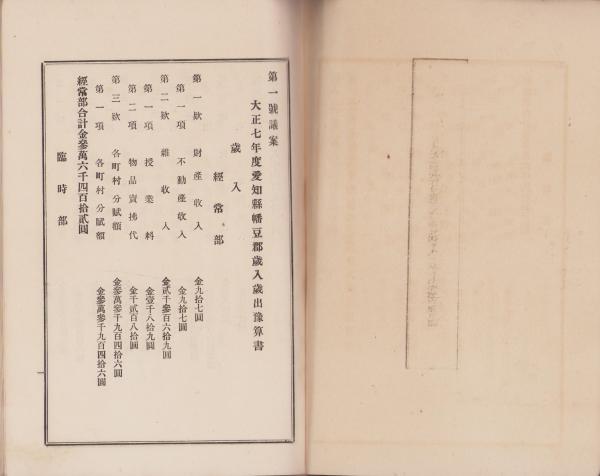 第一號議案
大正七年度愛知縣幡豆郡歲入歲出豫算書
歲入
經常部
第一款 財產收入 金九拾七圓
第一項 不動產收入 金九拾七圓
第二款 雜收入 金貳千參百六拾九圓
第一項 授業料 金壹千八拾九圓
第二項 物品賣拂代 金千貳百八拾圓
第三款 各町村分賦額 金參萬參千九百四拾六圓
第一項 各町村分賦額 金參萬參千九百四拾六圓
經常部合計金參萬六千四百拾貳圓
臨時部